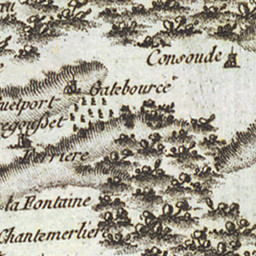 Consoude
Gatebource
uelport
Perriere
la Fontaine
Chantemerlier